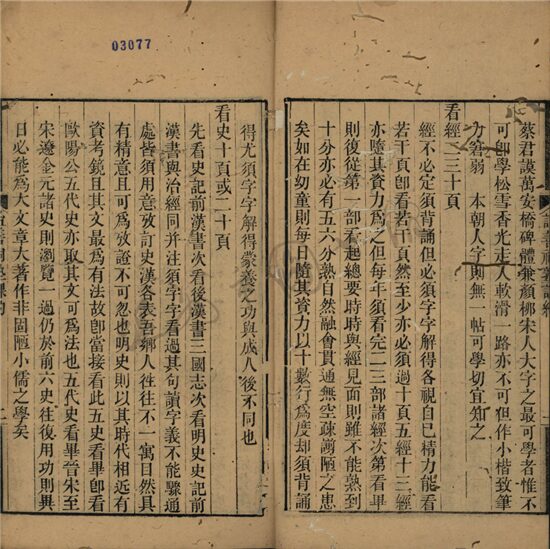 03077
蔡君謨萬安橋碑體兼顏柳宋人大字之最可學者惟不
可卽學松雪香光走人軟滑一路亦不可但作小楷致筆
力窘弱　本朝人字則無一帖可學切宜知之
看經二三十頁
經不必定須背誦但必須字字解得各視自己精力能看
若干頁卽看若干頁然至少亦必須過十頁五經十三經
亦隨其資力爲之但每年須看完二三部諸經次第看畢
則復從第一部看起總要時時與經見面則雖不能熟到
十分亦必有五六分熟自然融會貫通無空疎謭陋之患
矣如在幼童則每日隨其資力以十數行爲度却須背誦
得尤須字字解得蒙養之功與成人後不同也
看史十頁或二十頁
先看史記前漢書次看後漢書三國志次看明史史記前
漢書與治經同并注須字字看過其句讀字義不能驟通
處皆須用意攷訂史漢各表吾鄉人往往不一寓目然具
有精意且可爲攷證不可忽也明史則以其時代相近有
資考鏡且其文最爲有法故卽當接看此五史看畢卽看
歐陽公五代史亦取其文可爲法也五代史看畢晉宋至
宋遼金元諸史則瀏覽一過仍於前六史往復用功則異
日必能爲大文章大著作非固陋小儒之學矣